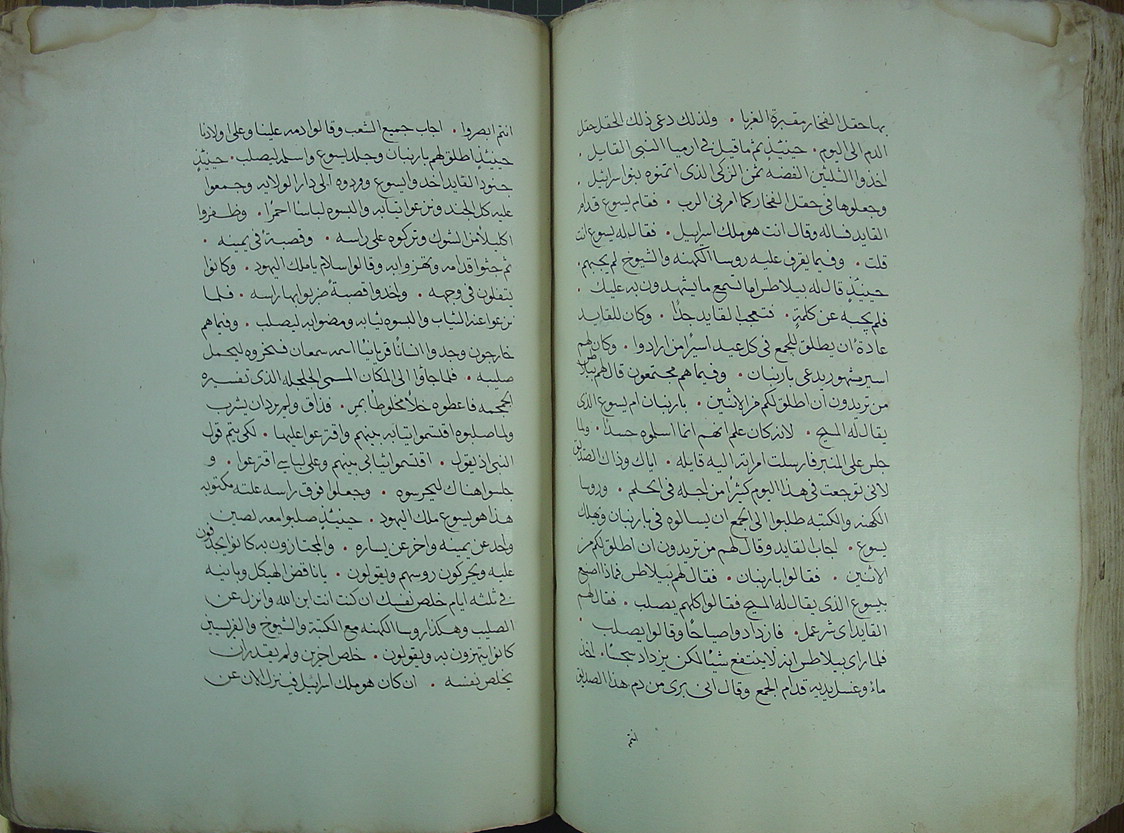 بها حقل الفخار مقبرة الغربا . ولذلك دعى ذلك الحقل حقل
الدم الى اليوم . حينيذٍ تم ما قيل في ارميا النبي القايل .
اخذوا الثلثين الفضه ثمن الزكى الذى اثمنوه بنوا سراييل .
وجعلوها فى حقل الفخار كما امرنى الرب . فقام يسوع قدام
القايد فساله وقال انت هو ملك اسراييل . فقال له يسوع انت
قلت . وفيما يقرف عليه روسا الكهنه والشيوخ لم يجبهم
حينيذٍ قال له بيلاطس اما تسمع ما يشهدون به عليك .
فلم يجبه عن كلمةٍ . فتعجب القايد جدًا . وكان للقايد
عادةً ان يطلق للجمع فى كل عيد اسيرًا من ارادوا . وكان لهم
اسير مشهور يدعى باربنان . وفيما هم مجتمعون قال لهم بيلاطس
من تريدون ان اطلق لكم من الاثنين . باربنان ام يسوع الذى
يقال له المسيح . لانه كان علم انهم انما اسلموه حسدًا . ولما
جلس على المنبر فارسلت امراته اليه قايله . اياك وذاك الصديق
لانى توجعت فى هذا اليوم كثيرًا من اجله فى الحلم . وروسا
الكهنه والكتبه طلبوا الى الجمع ان يسالوه فى باربنان ويهلك
يسوع . اجاب القايد وقال لهم من تريدون ان اطلق لكم من
الاثنين . فقالوا باربنان . فقال لهم بيلاطس فماذا اصنع
بيسوع الذى يقال له المسيح فقالوا كلهم يصلب . فقال لهم
القايد اى شر عمل . فازدادوا صياحًا وقالوا يصلب .
فلما راى بيلاطس انه لا ينتفع شيًا لكن يزداد سجسًا . اخذ
ماءً وغسل يديه قدام الجمع وقال انى برى من دم هذا الصديق
انتم
انتم ابصروا . اجاب جميع الشعب وقالوا دمه علينا وعلى اولادنا
حينيذٍ اطلق لهم باربنان وجلد يسوع واسلمه ليصلب . حينيذٍ
جنود القايد اخذوا يسوع ووردوه الى دار الولايه وجمعوا
عليه كل الجند ونزعوا ثيابه والبسوه لباسًا احمرًا . وظفروا
اكليلًا من الشوك وتركوه على راسه . وقصبةً فى يمينه .
ثم جثوا قدامه وتهزوا به وقالوا سلام يا ملك اليهود . وكانوا
يتفلون فى وجهه . واخذوا قصبةً ضربوا بها راسه . فلما
نزعوا عنه الثياب والبسوه ثيابه ومضوا به ليصلب . وفيما هم
خارجون وجدوا انسانًا قريانيًا اسمه سمعان فسخروه ليحمل
صليبه . فلما جاؤا الى المكان المسمى الجلجله الذى تفسيره
الجمجمه فاعطوه خلًا مخلوطًا بمر . فذاق ولم يرد ان يشرب
ولما صلبوه اقتسموا ثيابه بينهم واقترعوا عليها . لكى يتم قول
النبى اذ يقول . اقتسموا ثيابى بينهم وعلى لباسى اقترعوا . و
جلسوا هناك ليحرسوه . وجعلوا فوق راسه علته مكتوبه
هذا هو يسوع ملك اليهود . حينيذٍ صلبوا معه لصين
واحد عن يمينه واخر عن يساره . والمجتازون به كانوا يجدفون
عليه ويحركون روسهم ويقولون . يا ناقض الهيكل وبانيه
فى ثلثه ايام خلص نفسك ان كنت انت ابن الله وانزل عن
الصليب وهكذا روسا الكهنه مع الكتبة والشيوخ والفريسين
كانوا يتهزون به ويقولون . خلص اخرين ولم يقدر ان
يخلص نفسه . ان كان هو ملك اسراييل فينزل الان عن